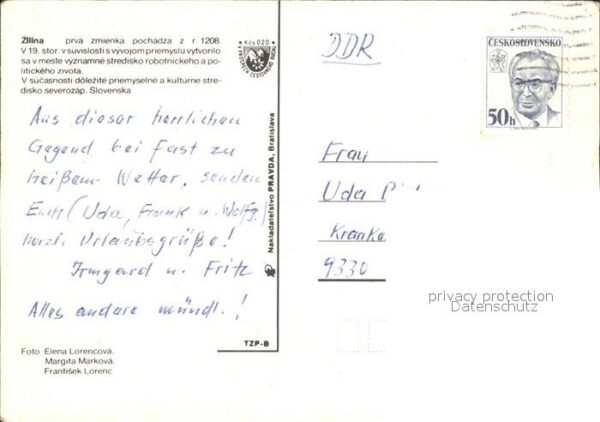 Žilina prvá zmienka pochádza z r. 1208.
V 19. stor. v súvislosti s vývojom priemyslu vytvorilo
sa v meste významné stredisko robotníckeho a po-
litického života.
V súčasnosti dôležité priemyselné a kultúrne stre-
disko severozáp. Slovenska.
Kčs 0,20
Aus dieser herrlichen
Gegend bei fast zu
heißem Wetter, senden
Euch (Uda, Frank u. Wolfg.)
herzl. Urlaubsgrüße!
Irmgard u. Fritz
Alles andere mündl.!
Foto Elena Lorencová,
Margita Marková,
František Lorenc
Nakladateľstvo PRAVDA, Bratislava
TZP-B
DDR
ČESKOSLOVENSKO
50h
Frau
Uda P
Kranke
9330
privacy protection
Datenschutz